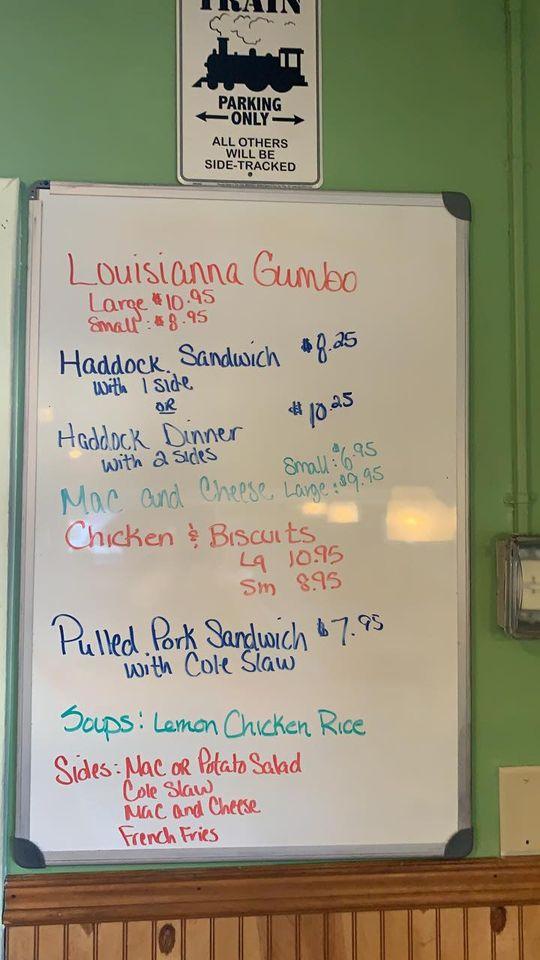 TRAIN
PARKING
ONLY
ALL OTHERS
WILL BE
SIDE-TRACKED
Louisianna Gumbo
Large $10.95
Small: $8.95
Haddock Sandwich $8.25
with 1 side
OR
Haddock Dinner $10.25
with 2 sides
Mac and Cheese Small: $6.95
Large: $9.95
Chicken & Biscuits
Lg 10.95
Sm 8.95
Pulled Pork Sandwich $7.95
with Cole Slaw
Soups: Lemon Chicken Rice
Sides: Mac or Potato Salad
Cole Slaw
Mac and Cheese
French Fries